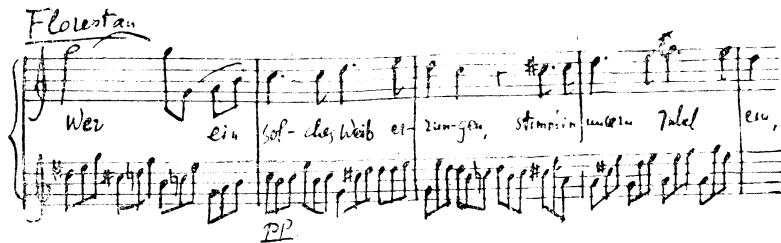 Florestan
Wer ein sol-ches Weib er-run-gen, stimm in unsern Jubel ein,
pp